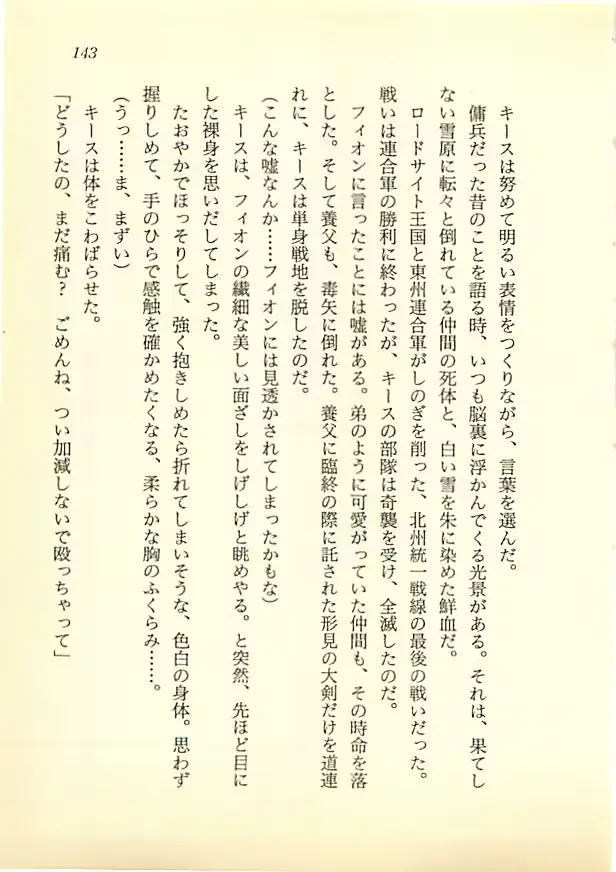 143
キースは努めて明るい表情をつくりながら、言葉を選んだ。
傭兵だった昔のことを語る時、いつも脳裏に浮かんでくる光景がある。それは、果てし
ない雪原に転々と倒れている仲間の死体と、白い雪を朱に染めた鮮血だ。
ロードサイト王国と東州連合軍がしのぎを削った、北州統一戦線の最後の戦いだった。
戦いは連合軍の勝利に終わったが、キースの部隊は奇襲を受け、全滅したのだ。
フィオンに言ったことには嘘がある。弟のように可愛がっていた仲間も、その時命を落
とした。そして養父も、毒矢に倒れた。養父に臨終の際に託された形見の大剣だけを道連
れに、キースは単身戦地を脱したのだ。
(こんな嘘なんか……フィオンには見透かされてしまったかもな)
キースは、フィオンの繊細な美しい面ざしをしげしげと眺めやる。と突然、先ほど目に
した裸身を思いだしてしまった。
たおやかでほっそりして、強く抱きしめたら折れてしまいそうな、色白の身体。思わず
握りしめて、手のひらで感触を確かめたくなる、柔らかな胸のふくらみ……。
(うっ……ま、まずい)
キースは体をこわばらせた。
「どうしたの、まだ痛む? ごめんね、つい加減しないで殴っちゃって」